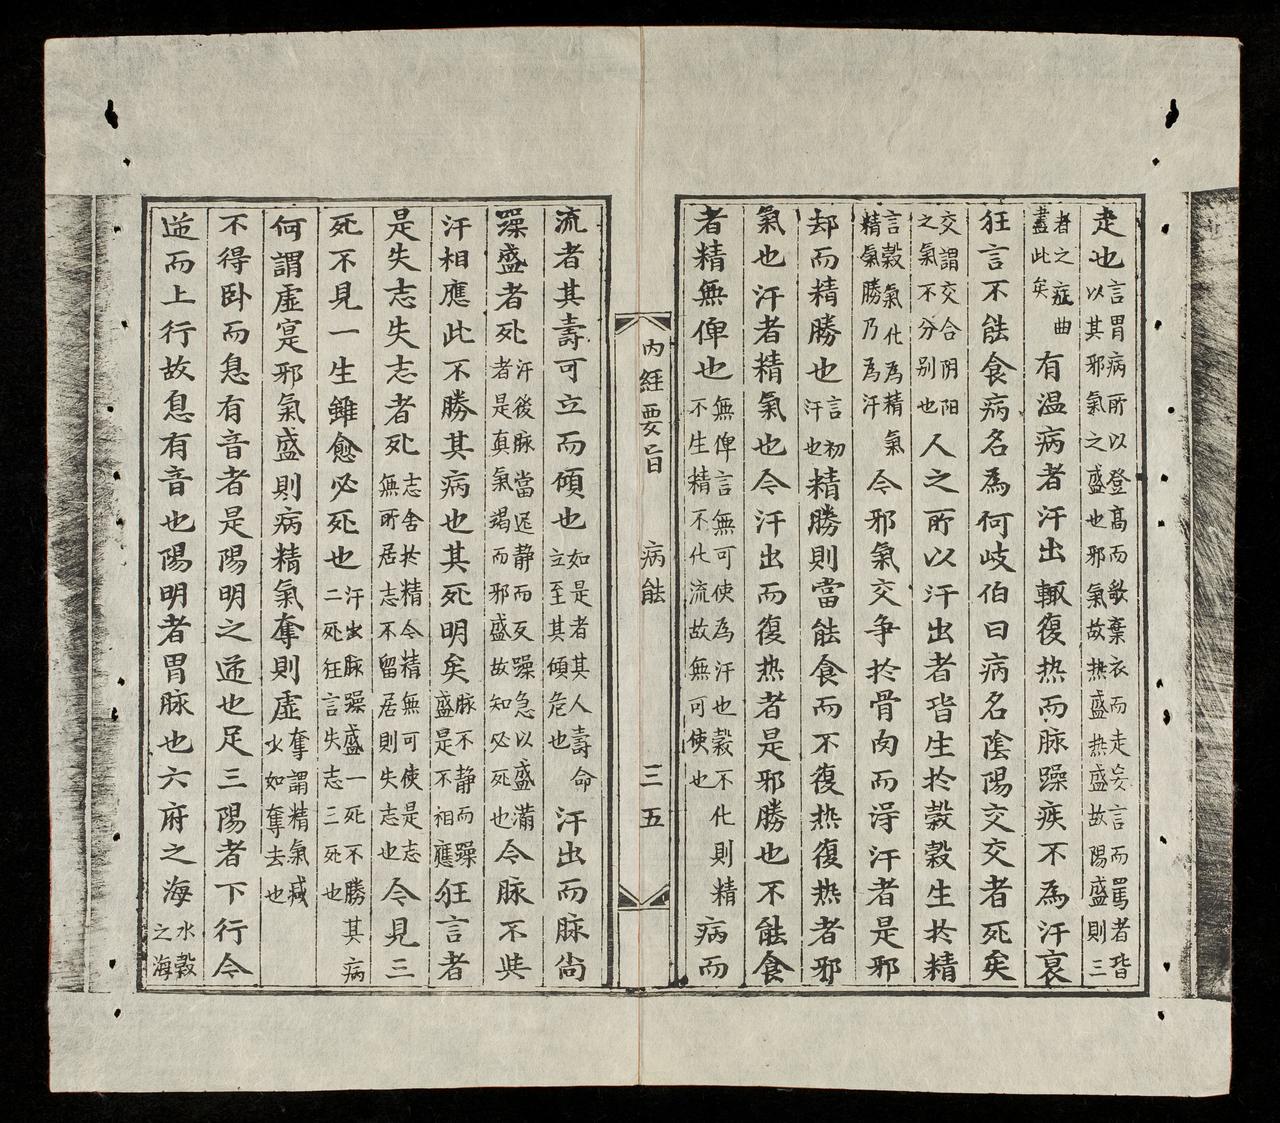 走也言胃病所以登高而歌棄衣而走妄言而罵者皆以其邪氣之盛也邪氣故热盛热盛故陽盛則三
者之症曲盡此矣有温病者汗出輒復热而脉躁疾不為汗衰
狂言不能食病名為何岐伯曰病名陰陽交交者死矣
交謂交合阴阳之氣不分别也人之所以汗出者皆生於穀穀生於精
言穀氣化為精氣精氣勝乃為汗今邪氣交争於骨肉而淂汗者是邪
却而精勝也言初汗也精勝則當能食而不復热復热者邪
氣也汗者精氣也今汗出而復热者是邪勝也不能食
者精無俾也無俾言無可使為汗也穀不化則精不生精不化流故無可使也病而
内經要旨 病能 三五
流者其壽可立而傾也如是者其人壽命立至其傾危也汗出而脉尙
躁盛者死汗後脉當迟静而反躁急以盛滿者是真氣竭而邪盛故知必死也今脉不與
汗相應此不勝其病也其死明矣脉不静而躁盛是不相應狂言者
是失志失志者死志舍於精今精無可使是志無所居志不留居則失志也今見三
死不見一生雖愈必死也汗出脉躁盛一死不勝其病二死狂言失志三死也
何謂虚寔邪氣盛則病精氣奪則虚奪謂精氣减少如奪去也
不得卧而息有音者是陽明之逆也足三陽者下行今
逆而上行故息有音也陽明者胃脉也六府之海水穀之海